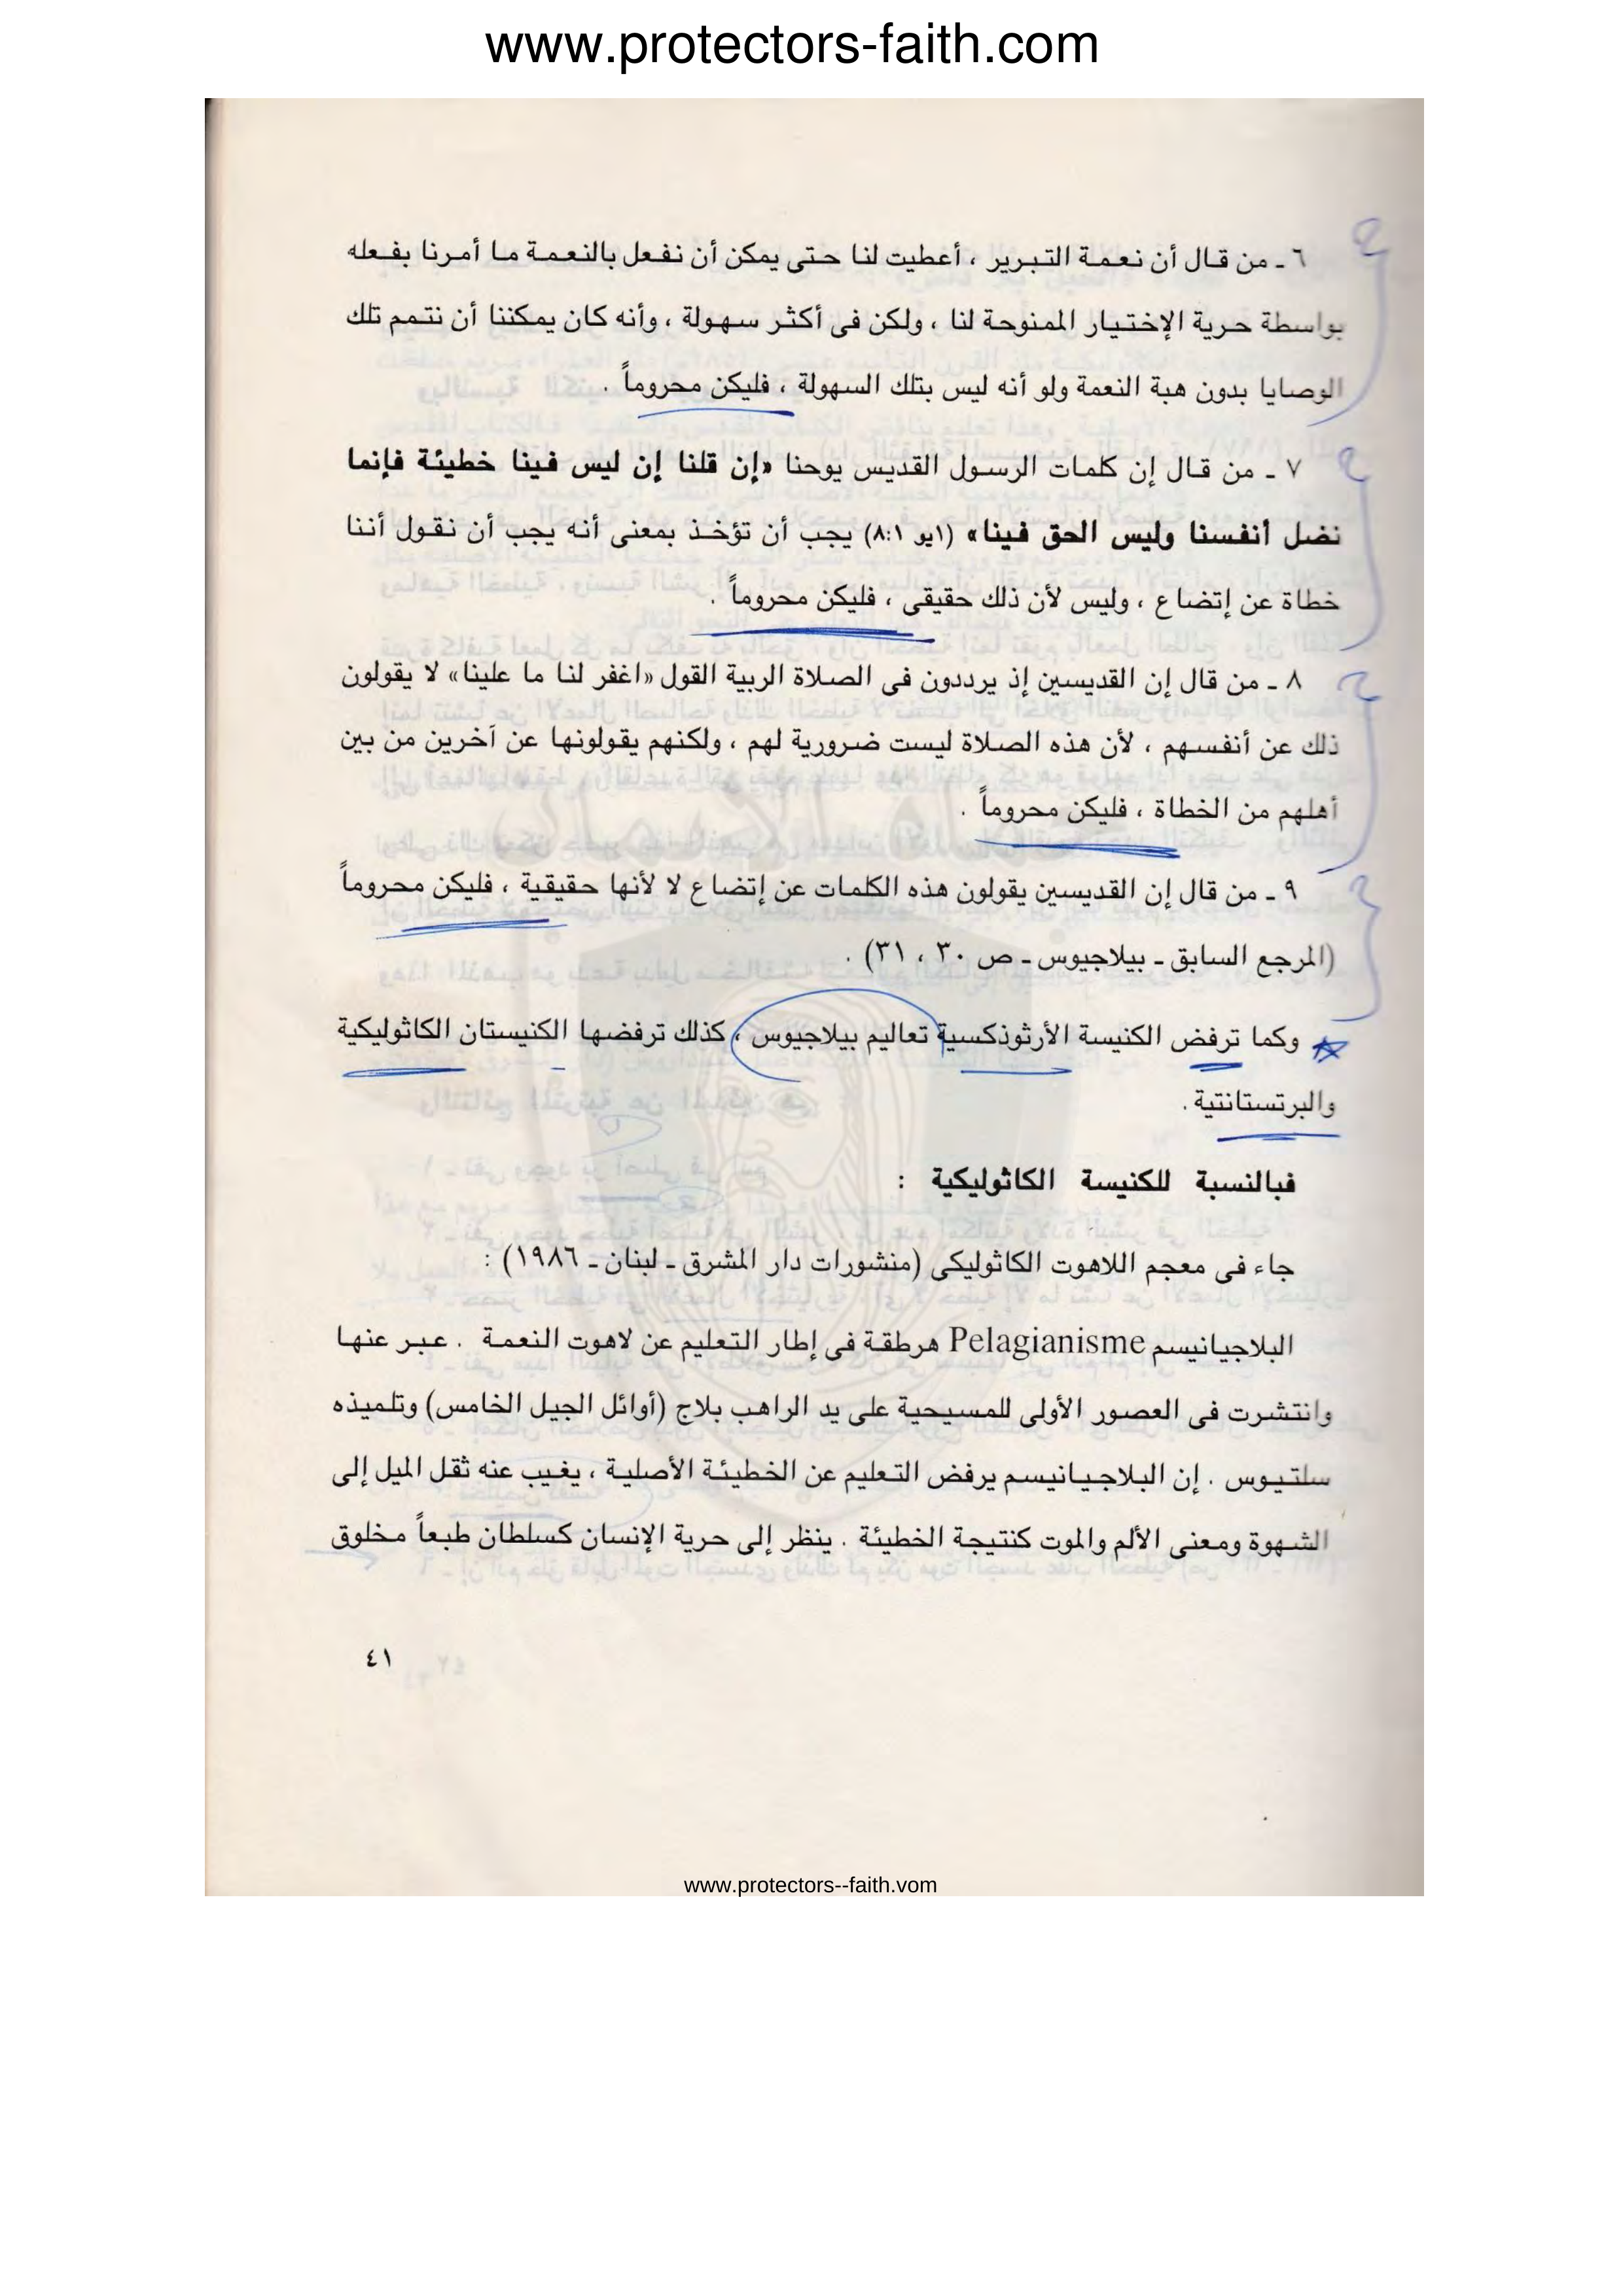 www.protectors-faith.com
٦ ـ من قال أن نعمة التبرير ، أعطيت لنا حتى يمكن أن نفعل بالنعمة ما أمرنا بفعله
بواسطة حرية الإختيار الممنوحة لنا ، ولكن فى أكثر سهولة ، وأنه كان يمكننا أن نتمم تلك
الوصايا بدون هبة النعمة ولو أنه ليس بتلك السهولة ، فليكن محروماً .
٧ ـ من قال إن كلمات الرسول القديس يوحنا «إن قلنا إن ليس فينا خطيئة فإنما
نضل أنفسنا وليس الحق فينا» (١يو ٨:١) يجب أن تؤخذ بمعنى أنه يجب أن نقول أننا
خطاة عن إتضاع ، وليس لأن ذلك حقيقى ، فليكن محروماً .
٨ ـ من قال إن القديسين إذ يرددون فى الصلاة الربية القول «اغفر لنا ما علينا» لا يقولون
ذلك عن أنفسهم ، لأن هذه الصلاة ليست ضرورية لهم ، ولكنهم يقولونها عن آخرين من بين
أهلهم من الخطاة ، فليكن محروماً .
٩ ـ من قال إن القديسين يقولون هذه الكلمات عن إتضاع لا لأنها حقيقية ، فليكن محروماً
(المرجع السابق ـ بيلاجيوس ـ ص ٣٠ ، ٣١) .
وكما ترفض الكنيسة الأرثوذكسية تعاليم بيلاجيوس ، كذلك ترفضها الكنيستان الكاثوليكية
والبرتستانتية .
فبالنسبة للكنيسة الكاثوليكية :
جاء فى معجم اللاهوت الكاثوليكى (منشورات دار المشرق ـ لبنان ـ ١٩٨٦) :
البلاجيانيسم Pelagianisme هرطقة فى إطار التعليم عن لاهوت النعمة . عبر عنها
وانتشرت فى العصور الأولى للمسيحية على يد الراهب بلاج (أوائل الجيل الخامس) وتلميذه
سلتيوس . إن البلاجيانيسم يرفض التعليم عن الخطيئة الأصلية ، يغيب عنه ثقل الميل إلى
الشهوة ومعنى الألم والموت كنتيجة الخطيئة . ينظر إلى حرية الإنسان كسلطان طبعاً مخلوق
٤١
www.protectors--faith.vom